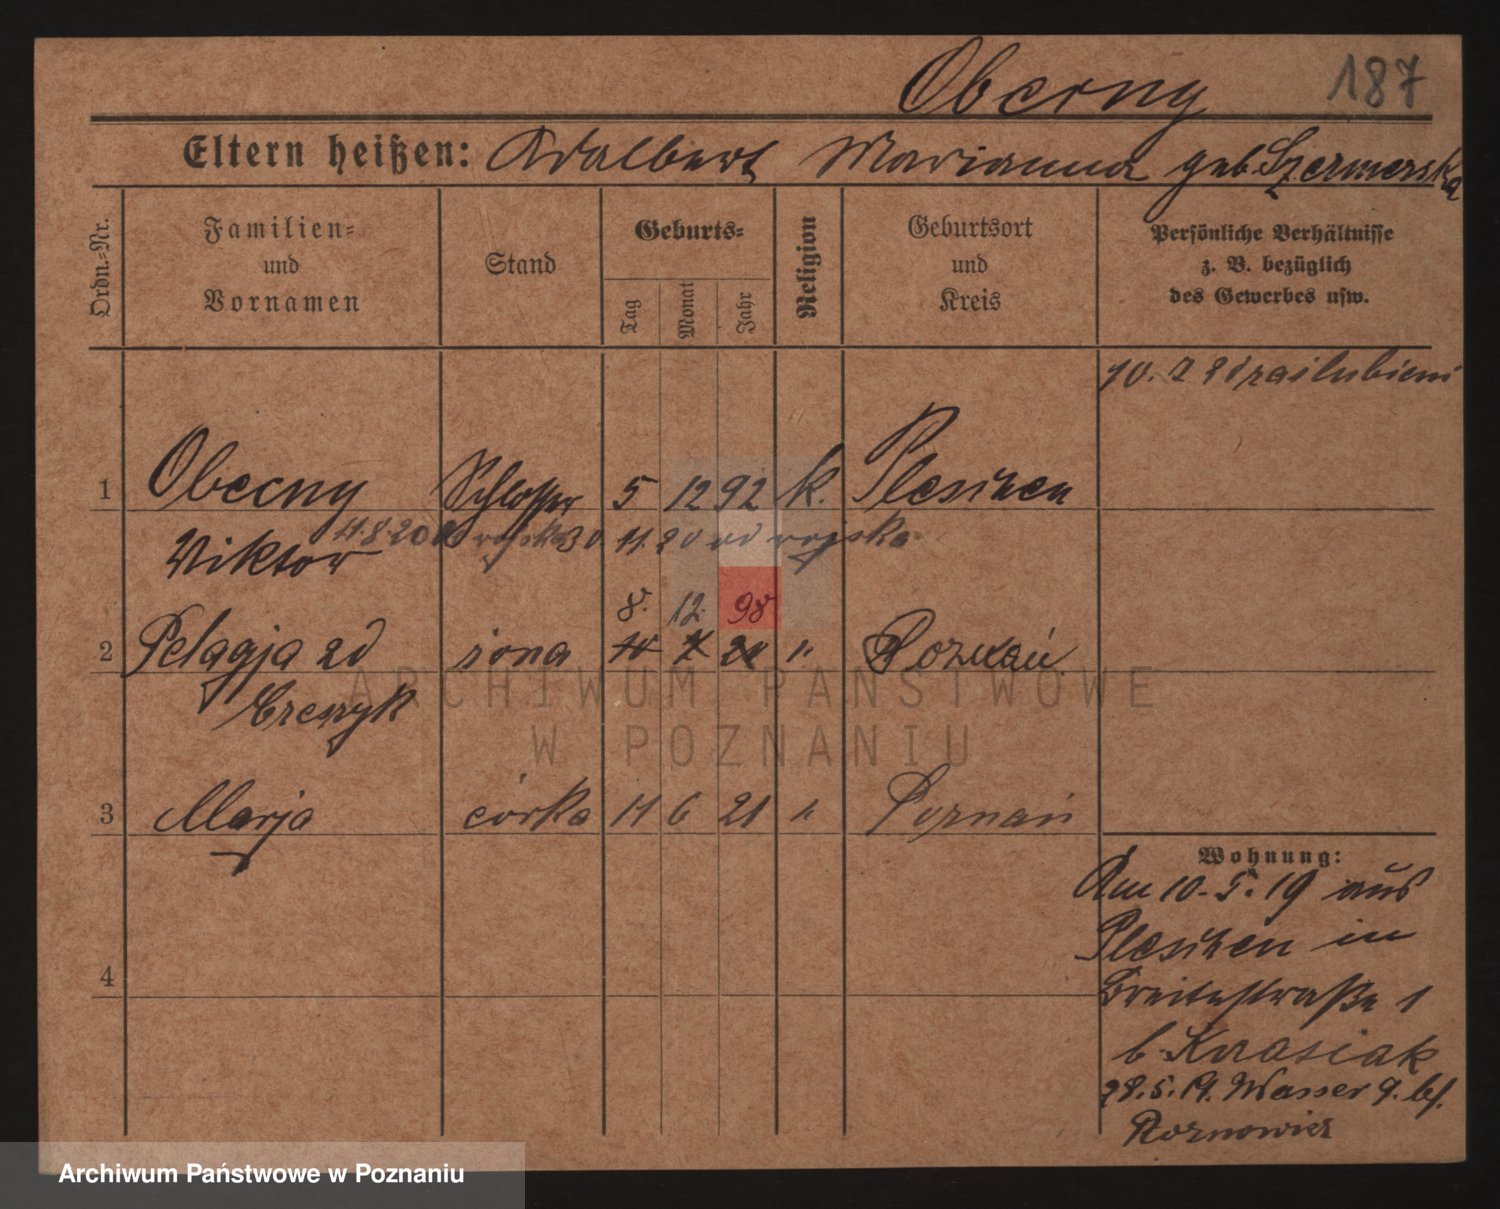 Obecny 187
Eltern heißen: Adalbert Marianna geb. Szermerska
Ordn.-Nr.
Familien-
und
Vornamen
Stand
Geburts-
Tag
Monat
Jahr
Religion
Geburtsort
und
Kreis
Persönliche Verhältnisse
z. B. bezüglich
des Gewerbes usw.
10. 7 21 zaślubieni
1 Obecny Schlosser 5 12 92 k. Pleschen
Viktor 4.8.20 do wojska 30 11. 20 od wojska
8. 12. 98
2 Pelagja zd żona 10 7 21 " Poznań
3 Marja córka 11 6 21 " Poznań
4
Wohnung:
Am 10.5.19 aus
Pleschen in
Breitestraße 1
b. Kurasiak
28.5.19. Wasser 9. bf.
ARCHIWUM PAŃSTWOWE
W POZNANIU
Archiwum Państwowe w Poznaniu